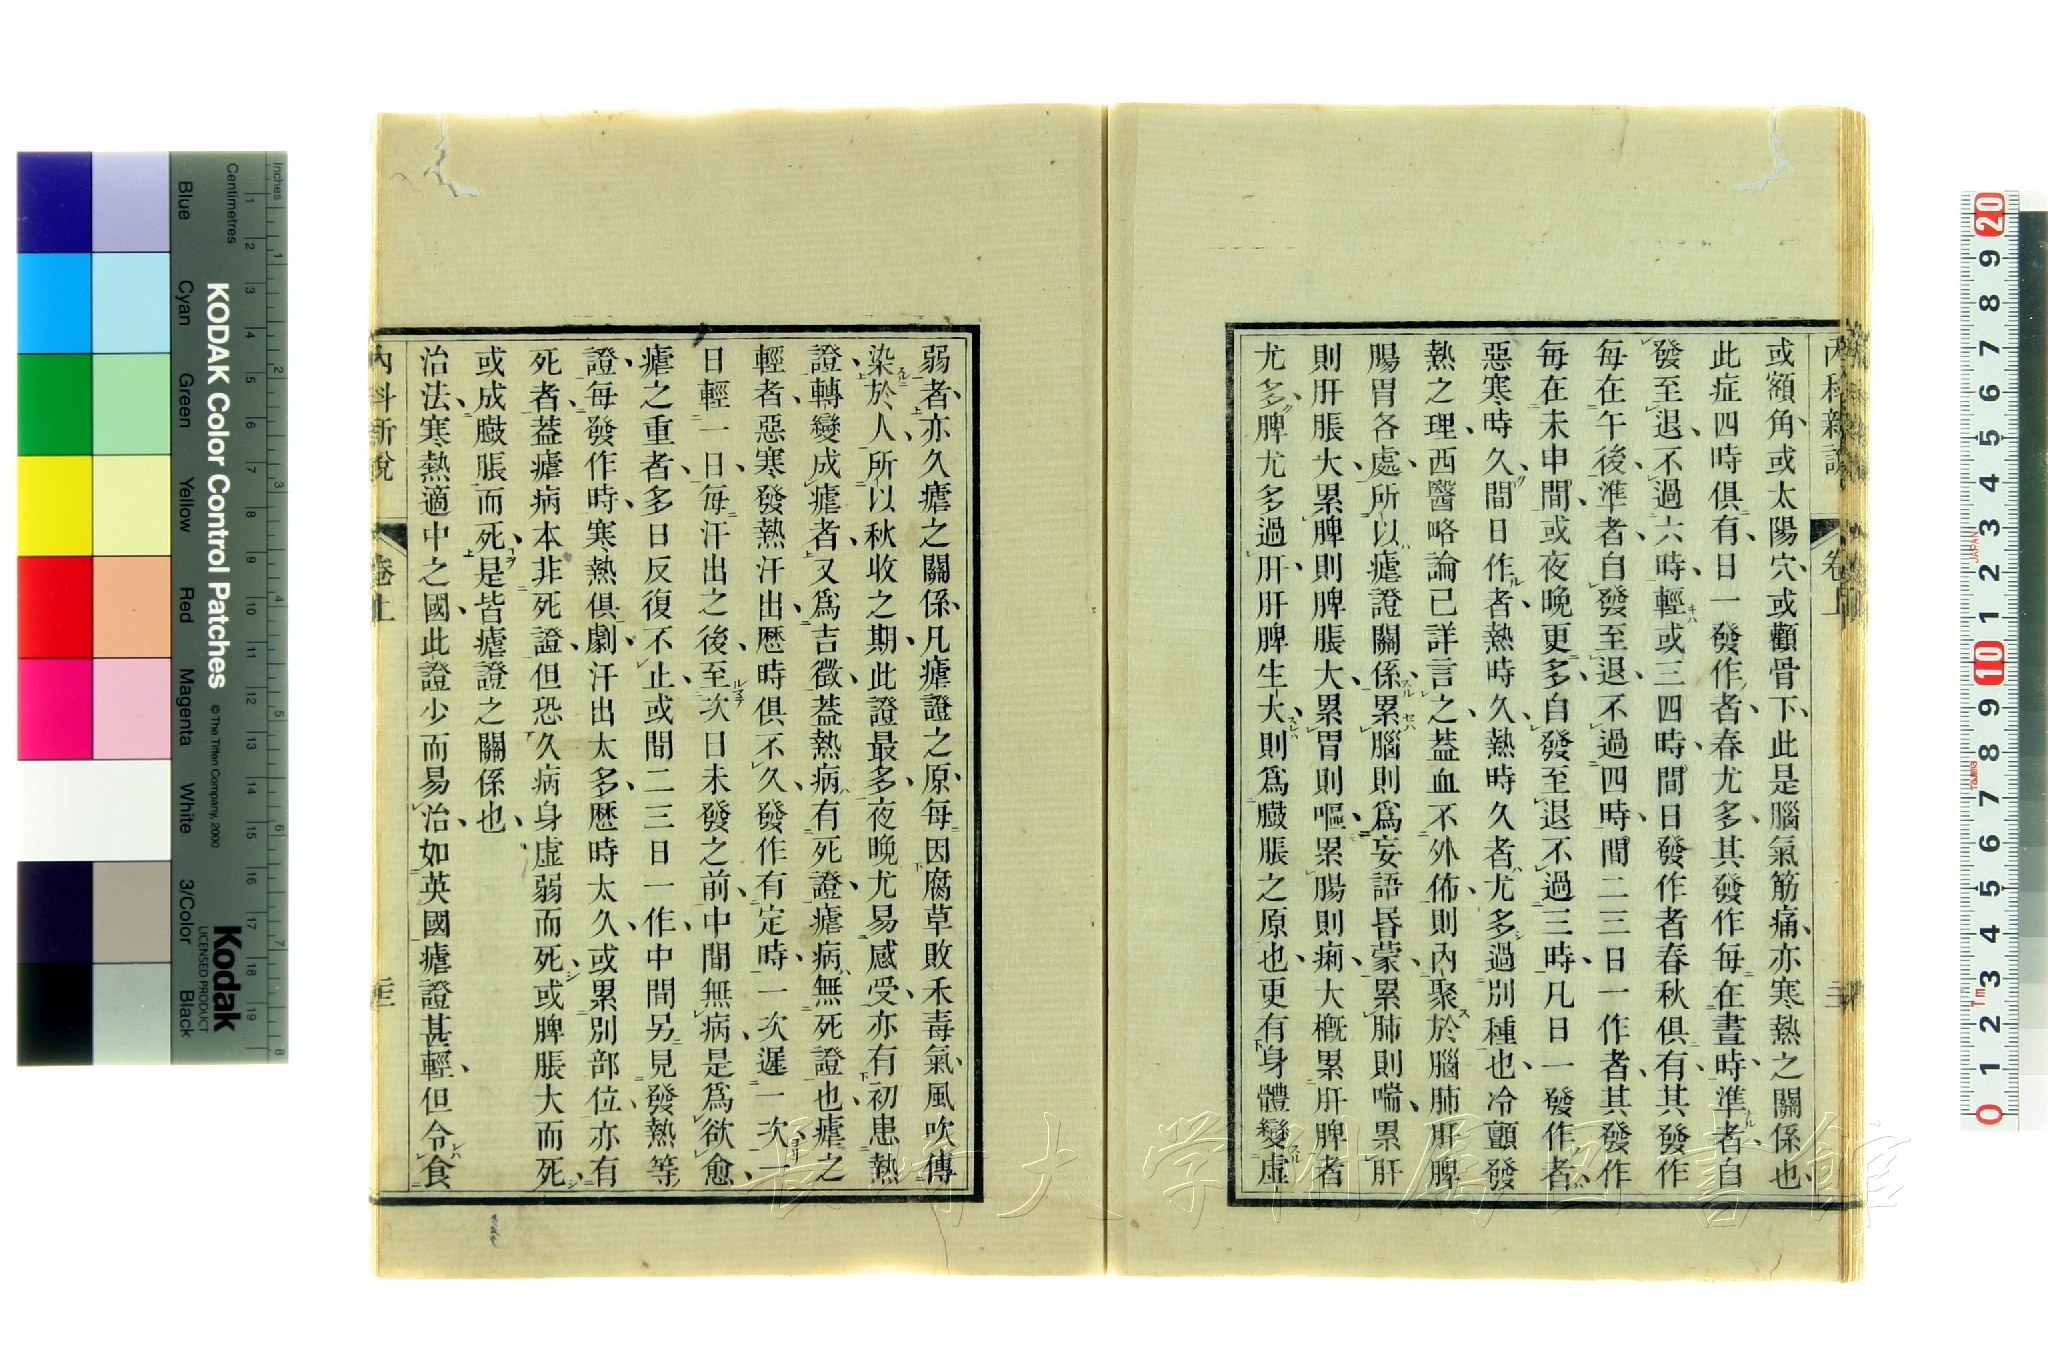 內科新說 卷上
或額角、或太陽穴、或顴骨下、此是腦氣筋痛、亦寒熱之關係也、
此症四時俱有、日一發作者、春尤多、其發作每在晝時、準者自
發至退、不過六時、輕或三四時、間日發作者、春秋俱有、其發作
每在午後、準者、自發至退、不過四時、間二三日一作者、其發作
每在未申間、或夜晚更多、自發至退、不過三時、凡日一發作者、
惡寒時久、間日作者、熱時久、熱時久者、尤多過別種也、冷顫發
熱之理、西醫略論已詳言之、葢血不外佈、則內聚於腦肺肝脾
腸胃各處、所以瘧證關係、累腦則爲妄語昏蒙、累肺則喘、累肝
則肝脹大、累脾則脾脹大、累胃則嘔、累腸則痢、大槪累肝脾者
尤多、脾尤多過肝、肝脾生大、則爲臌脹之原也、更有身體變虛
弱者、亦久瘧之關係、凡瘧證之原、每因腐草敗禾毒氣、風吹傳
染於人、所以秋收之期、此證最多、夜晚尤易感受、亦有初患熱
證、轉變成瘧者、又爲吉徵、葢熱病有死證、瘧病無死證也、瘧之
輕者、惡寒發熱汗出、歷時俱不久、發作有定時、一次遲一次、一
日輕一日、每汗出之後、至次日未發之前、中間無病、是爲欲愈、
瘧之重者、多日反復不止、或間二三日一作、中間另見發熱等
證、每發作時、寒熱俱劇、汗出太多、歷時太久、或累別部位、亦有
死者、葢瘧病本非死證、但恐久病身虛弱而死、或脾脹大而死、
或成臌脹而死、是皆瘧證之關係也、
治法、寒熱適中之國、此證少而易治、如英國瘧證甚輕、但令食
內科新說 卷上
KODAK Color Control Patches
© The Tiffen Company, 2000
Kodak
LICENSED PRODUCT
Inches 1 2 3 4 5 6 7 8
Centimetres 1 2 3 4 5 6 7 8 9 10 11 12 13 14 15 16 17 18 19
Blue Cyan Green Yellow Red Magenta White 3/Color Black
20 9 8 7 6 5 4 3 2 1 10 9 8 7 6 5 4 3 2 1 0
長崎大学附属図書館